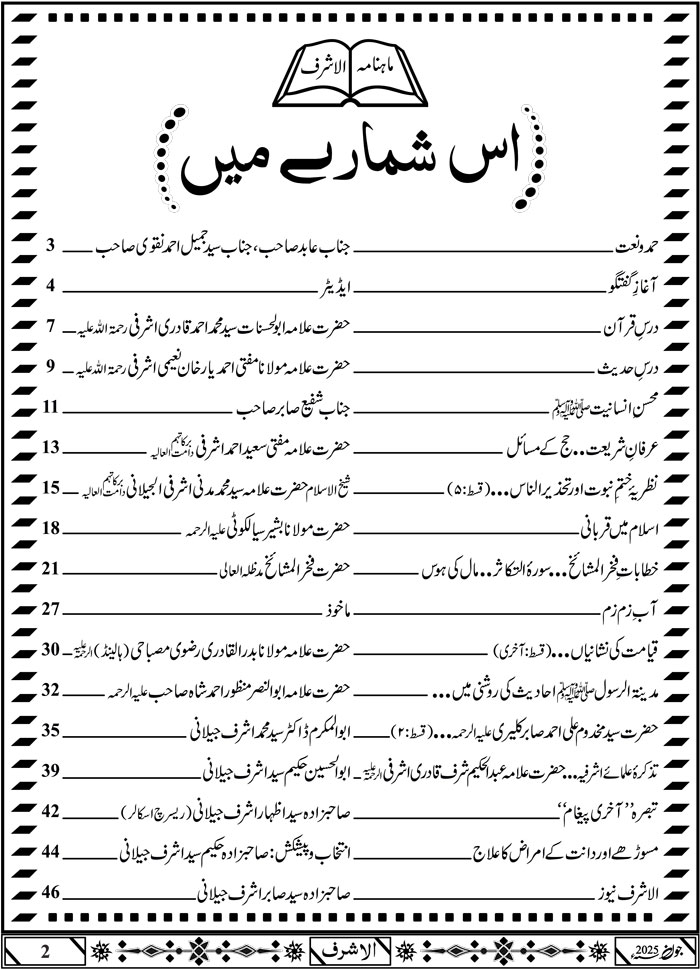 ماہنامہ الاشرف
اس شمارے میں
حمد و نعت جناب عابد صاحب، جناب سید جمیل احمد نقوی صاحب 3
آغازِ گفتگو ایڈیٹر 4
درسِ قرآن حضرت علامہ ابوالحسنات سید محمد احمد قادری اشرفی رحمۃ اللہ علیہ 7
درسِ حدیث حضرت علامہ مولانا مفتی احمد یار خان نعیمی اشرفی رحمۃ اللہ علیہ 9
محسنِ انسانیت ﷺ جناب شفیع صابر صاحب 11
عرفانِ شریعت.. حج کے مسائل حضرت علامہ مفتی سعید احمد اشرفی دامت برکاتہم العالیہ 13
نظریۂ ختمِ نبوت اور تحذیر الناس... (قسط:۵) شیخ الاسلام حضرت علامہ سید محمد مدنی اشرفی الجیلانی دامت برکاتہم العالیہ 15
اسلام میں قربانی حضرت مولانا بشیر سیالکوٹی علیہ الرحمہ 18
خطاباتِ فخر المشائخ... سورۃ التکاثر.. مال کی ہوس حضرت فخر المشائخ مدظلہ العالی 21
آبِ زم زم ماخوذ 27
قیامت کی نشانیاں... (قسط:آخری) حضرت علامہ مولانا بدر القادری رضوی مصباحی (ہالینڈ) علیہ الرحمہ 30
مدینۃ الرسول ﷺ احادیث کی روشنی میں... حضرت علامہ ابوالنصر منظور احمد شاہ صاحب علیہ الرحمہ 32
حضرت سید مخدوم علی احمد صابر کلیری علیہ الرحمہ... (قسط:۲) ابوالمکرم ڈاکٹر سید محمد اشرف جیلانی 35
تذکرۂ علمائے اشرفیہ... حضرت علامہ عبدالحکیم شرف قادری اشرفی علیہ الرحمہ ابوالحسین حکیم سید اشرف جیلانی 39
تبصرہ ”آخری پیغام“ صاحبزادہ سید اظہار اشرف جیلانی (ریسرچ اسکالر) 42
مسوڑھے اور دانت کے امراض کا علاج انتخاب و پیشکش: صاحبزادہ حکیم سید اشرف جیلانی 44
الاشرف نیوز صاحبزادہ سید صابر اشرف جیلانی 46
جون 2025ء الاشرف 2